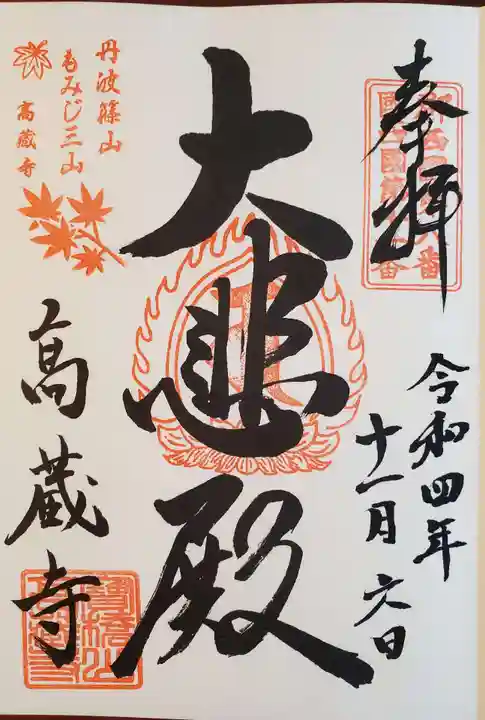 奉拝
令和四年
十一月六日
大悲殿
丹波篠山
もみじ三山
高蔵寺
高蔵寺